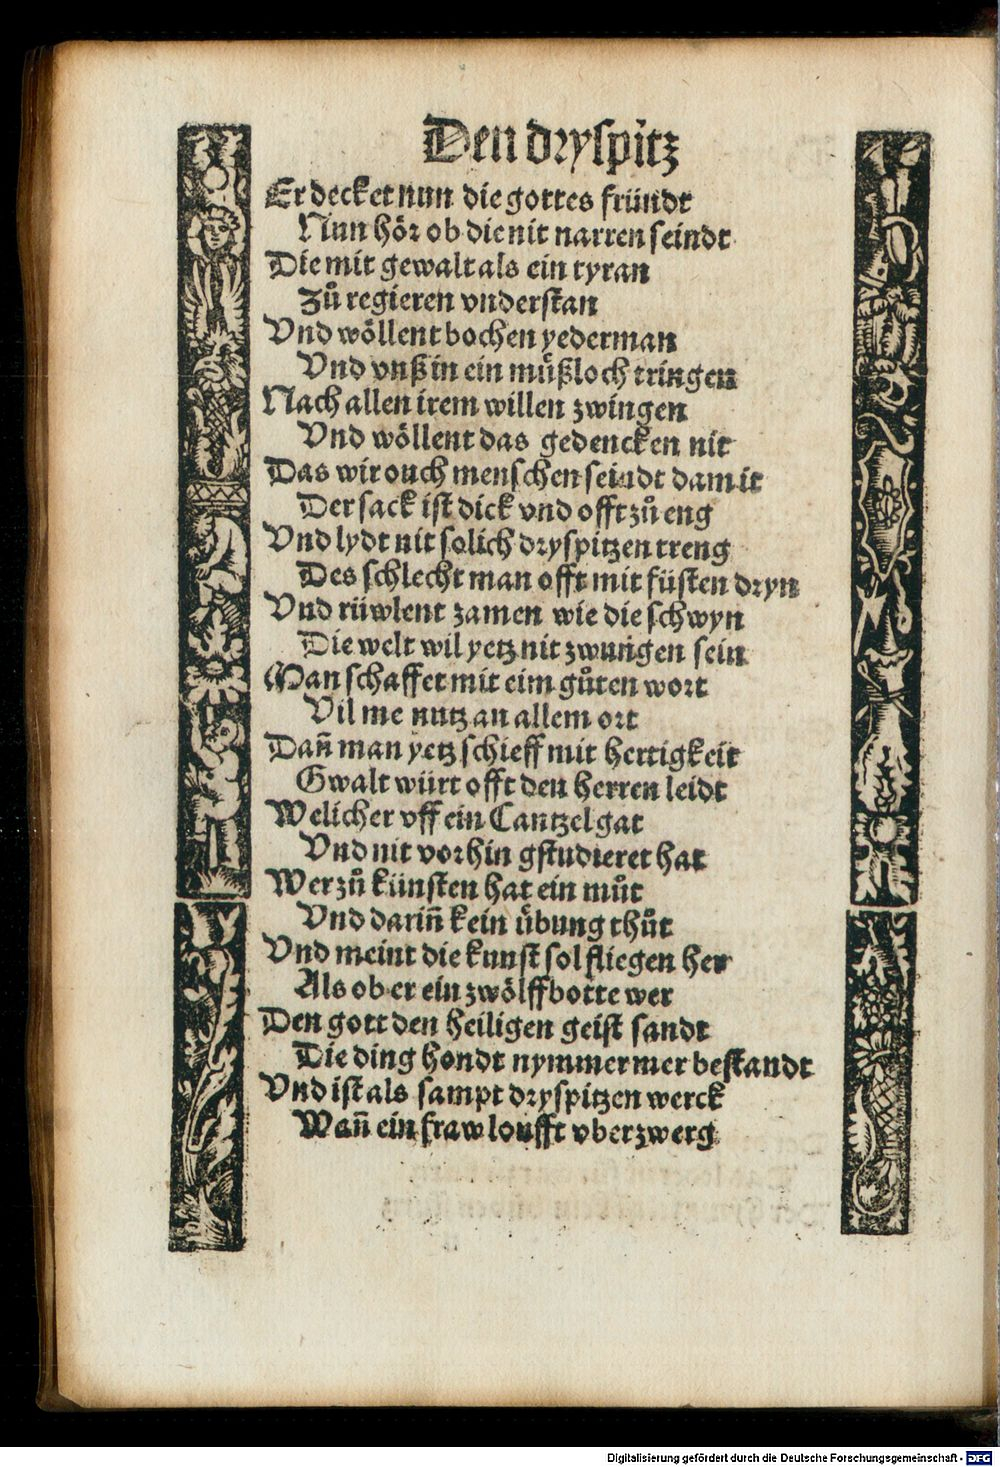 Den dryspitz
Er decket nun die gottes fründt
Nun hör ob die nit narren seindt
Die mit gewalt als ein tyran
Zů regieren vnderstan
Vnd wöllent bochen yederman
Vnd vnß in ein müßloch tringen
Nach allen irem willen zwingen
Vnd wöllent das gedencken nit
Das wir ouch menschen seindt damit
Der sack ist dick vnd offt zů eng
Vnd lydt nit solich dryspitzen treng
Des schlecht man offt mit füsten dryn
Vnd rüwlent zamen wie die schwyn
Die welt wil yetz nit zwungen sein
Man schaffet mit eim gůten wort
Vil me nutz an allem ort
Dañ man yetz schieff mit hertigkeit
Gwalt würt offt den herren leidt
Welicher vff ein Cantzel gat
Vnd nit vorhin gstudieret hat
Wer zů künsten hat ein můt
Vnd dariñ kein übung thůt
Vnd meint die kunst sol fliegen her
Als ob er ein zwölffbotte wer
Den gott den heiligen geist sandt
Die ding hondt nymmer mer bestandt
Vnd ist als sampt dryspitzen werck
Wañ ein fraw loufft vberzwerg
Digitalisierung gefördert durch die Deutsche Forschungsgemeinschaft - DFG